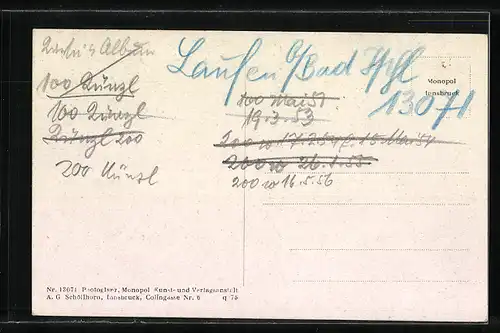 Album
100 Künzl
100 Künzl
Künzl 200
200 Künzl
Laufen b/Bad Ischl
13071
Monopol
Innsbruck
100 Mai 51
19.3.53
200 w 26.1.55
200 w 16.5.56
Nr. 13071 Photoglanz, Monopol Kunst- und Verlagsanstalt
A. G. Schöllhorn, Innsbruck, Colingasse Nr. 6 q 75